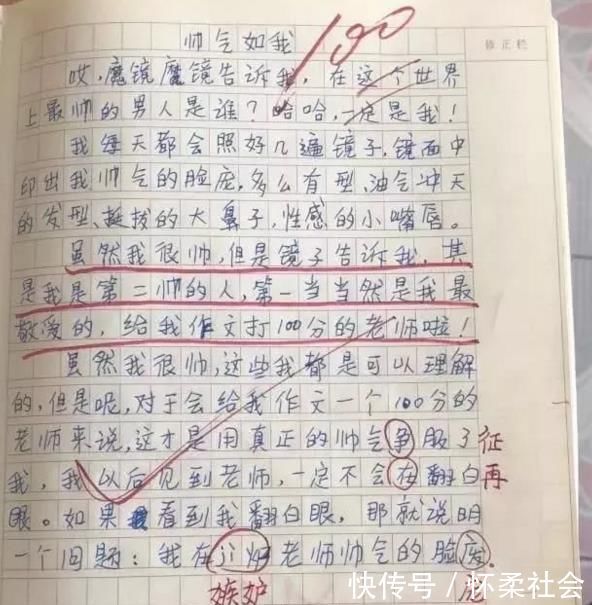 帅气如我
100
修正栏
哎,魔镜魔镜告诉我,在这个世界
上最帅的男人是谁?哈哈,一定是我!
我每天都会照好几遍镜子,镜面中
印出我帅气的脸庞,多么有型、油气冲天
的发型、挺拔的大鼻子,性感的小嘴唇。
虽然我很帅,但是镜子告诉我,其
是我是第二帅的人,第一当当然是我最
敬爱的,给我作文打100分的老师啦!
虽然我很帅,这些我都是可以理解
的,但是呢,对于会给我作文一个100分的
老师来说,这才是用真正的帅气争服了征
我,我以后见到老师,一定不会在翻白再
眼。如果看到我翻白眼,那就说明
一个问题:我在 老师帅气的脸
嫉妒
快传号/怀柔社会